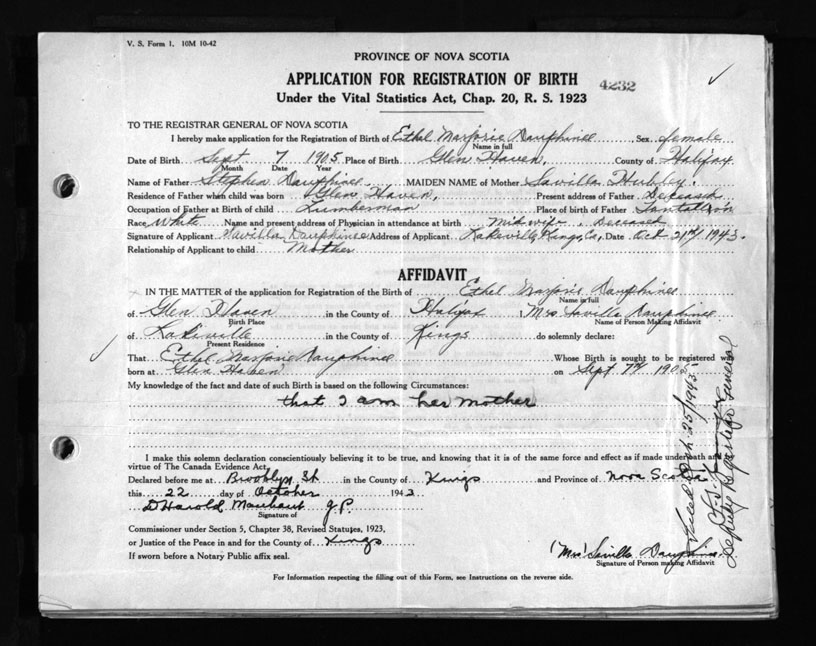 V. S. Form 1. 10M 10-42
PROVINCE OF NOVA SCOTIA
APPLICATION FOR REGISTRATION OF BIRTH 4232
Under the Vital Statistics Act, Chap. 20, R. S. 1923
TO THE REGISTRAR GENERAL OF NOVA SCOTIA
I hereby make application for the Registration of Birth of Ethel Marjorie Dauphinee Sex female
Name in full
Date of Birth Sept 7 1905 Place of Birth Glen Haven, County of Halifax
Month Date Year
Name of Father Stephen Dauphinee MAIDEN NAME of Mother Savilla Hubly.
Residence of Father when child was born Glen Haven, Present address of Father Deceased
Occupation of Father at Birth of child Lumberman Place of birth of Father Tantallon
Race White Name and present address of Physician in attendance at birth Midwife, Deceased
Signature of Applicant Savilla Dauphinee Address of Applicant Lakeville Kings Co, Date Oct 21st 1943.
Relationship of Applicant to child Mother
AFFIDAVIT
IN THE MATTER of the application for Registration of the Birth of Ethel Marjorie Dauphinee
Name in full
of Glen Haven in the County of Halifax I, Mrs Savilla Dauphinee
Birth Place Name of Person Making Affidavit
of Lakeville in the County of Kings do solemnly declare:
Present Residence
That Ethel Marjorie Dauphinee Whose Birth is sought to be registered was
born at Glen Haven on Sept 7th 1905
My knowledge of the fact and date of such Birth is based on the following Circumstances:
that I am her mother
I make this solemn declaration conscientiously believing it to be true, and knowing that it is of the same force and effect as if made under oath and
virtue of The Canada Evidence Act,
Declared before me at Brooklyn St in the County of Kings and Province of Nova Scotia
this 22 day of October 1943
D Harold J.P.
Signature of
Commissioner under Section 5, Chapter 38, Revised Statutes, 1923,
or Justice of the Peace in and for the County of Kings
If sworn before a Notary Public affix seal.
(Mrs) Savilla Dauphinee
Signature of Person making Affidavit
For Information respecting the filling out of this Form, see Instructions on the reverse side.
Oct. 25/1943
Deputy Registrar General